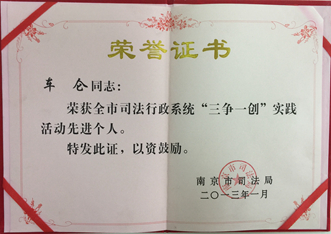 荣誉证书
车仑同志：
荣获全市司法行政系统“三争一创”实践
活动先进个人。
特发此证，以资鼓励。
南京市司法局
二〇一三年一月